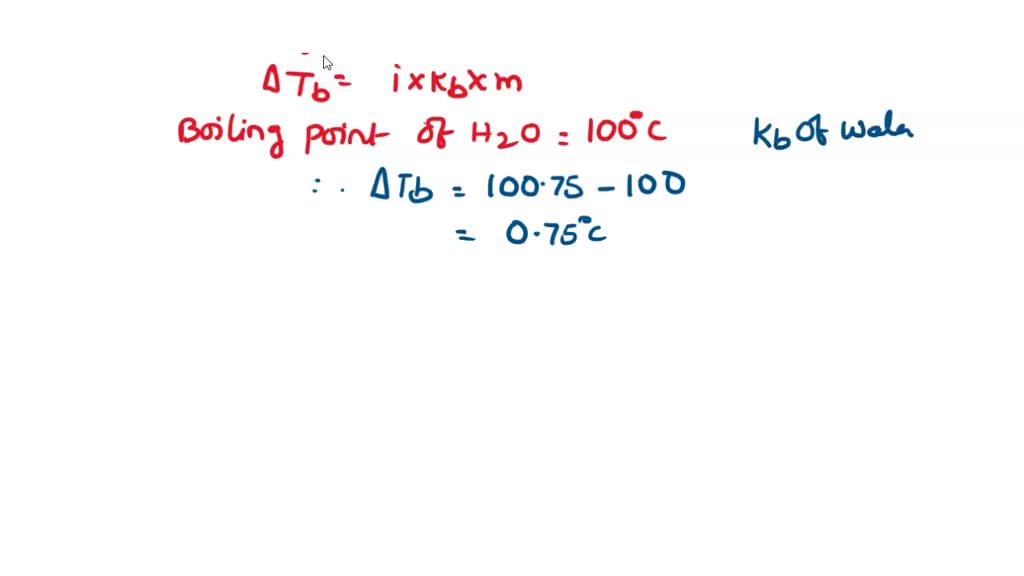 ΔTb = i x Kb x m
Boiling point of H2O = 100°C Kb of wala
∴ ΔTb = 100.75 - 100
= 0.75°C